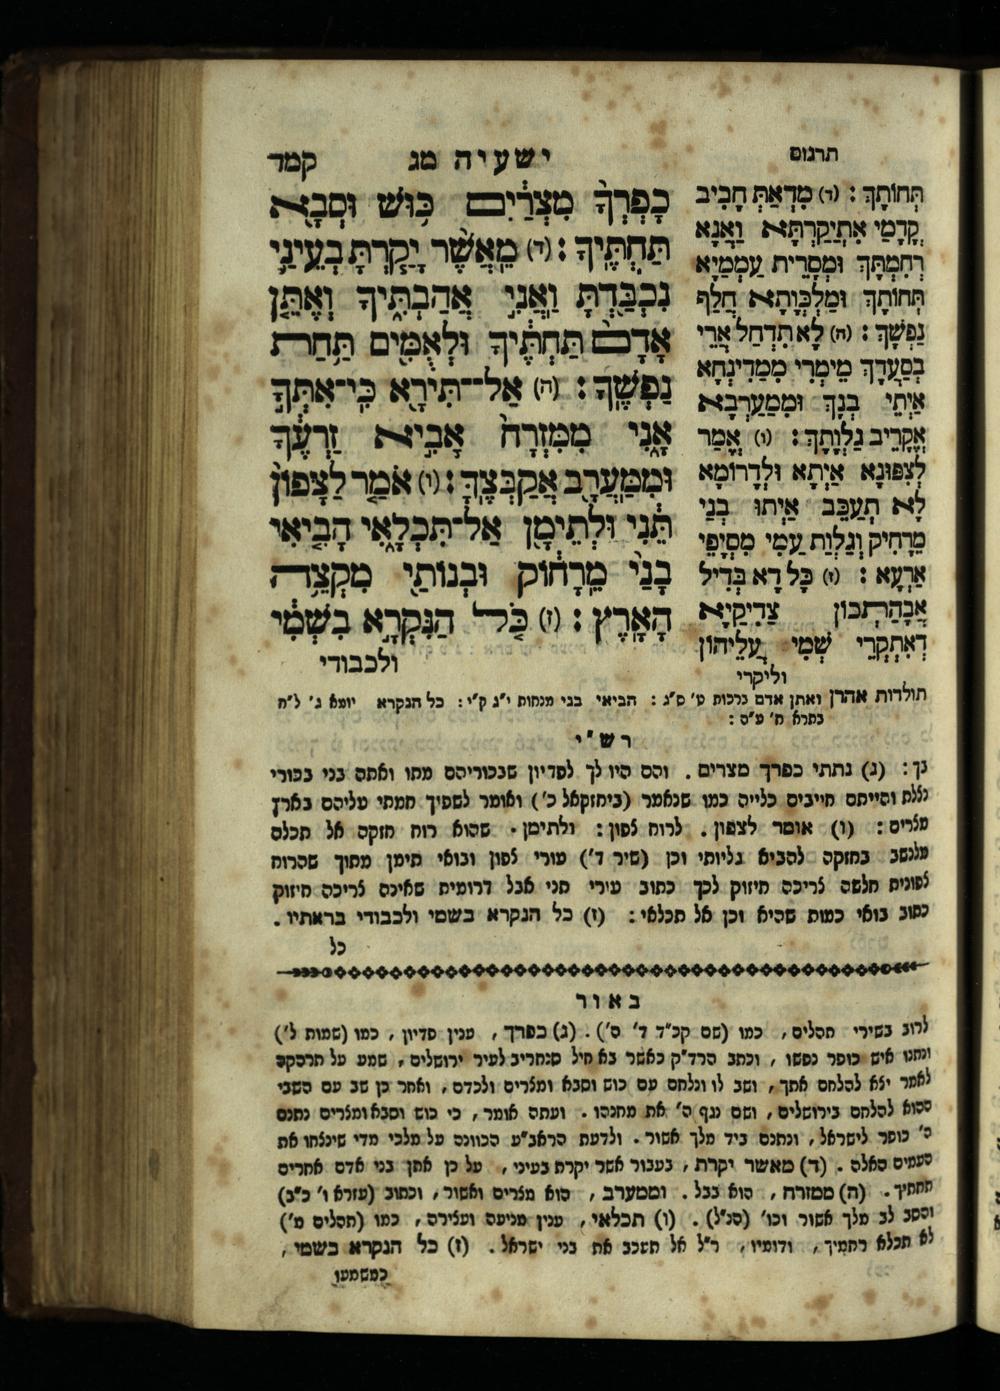 תרגום
ישעיה מג קמד
כָפְרְךָ֙ מִצְרַ֔יִם כּ֥וּשׁ וּסְבָ֖א
תַּחְתֶּֽיךָ׃ (ד) מֵאֲשֶׁ֨ר יָקַ֧רְתָּ בְעֵינַ֛י
נִכְבַּ֖דְתָּ וַאֲנִ֣י אֲהַבְתִּ֑יךָ וְאֶתֵּ֤ן
אָדָם֙ תַּחְתֶּ֔יךָ וּלְאֻמִּ֖ים תַּ֥חַת
נַפְשֶֽׁךָ׃ (ה) אַל־תִּירָ֖א כִּ֣י־אִתְּךָ֣
אָ֑נִי מִמִּזְרָח֙ אָבִ֣יא זַרְעֶ֔ךָ
וּמִֽמַּעֲרָ֖ב אֲקַבְּצֶֽךָּ׃ (ו) אֹמַ֤ר לַצָּפוֹן֙
תֵּ֔נִי וּלְתֵימָ֖ן אַל־תִּכְלָ֑אִי הָבִ֤יאִי
בָנַי֙ מֵרָח֔וֹק וּבְנוֹתַ֖י מִקְצֵ֥ה
הָאָֽרֶץ׃ (ז) כֹּ֚ל הַנִּקְרָ֣א בִשְׁמִ֔י
ולכבודי
תְּחוֹתָךְ׃ (ד) מִדְאַתְּ חָבִיב
קֳדָמַי אִתְיַקַרְתָּא וַאֲנָא
רְחִמְתָּךְ וּמְסָרִית עַמְמַיָא
תְּחוֹתָךְ וּמַלְכְּוָתָא חֲלַף
נַפְשָׁךְ׃ (ה) לָא תִדְחַל אֲרֵי
בְסַעֲדָךְ מֵימְרִי מִמַדִינְחָא
אַיְתֵי בְנָךְ וּמִמַעַרְבָא
אֲקָרֵיב גַלְוָתָךְ׃ (ו) אֲמַר
לְצִפּוּנָא אַיְתָא וּלְדָרוֹמָא
לָא תְעַכֵּב אַיְתוּ בְנַי
מֵרָחִיק וְגַלְוַת עַמִי מִסְיָפֵי
אַרְעָא׃ (ז) כָּל דָא בְּדִיל
אֲבָהַתְכוֹן צַדִיקַיָא
דְאִתְקְרֵי שְׁמִי עֲלֵיהוֹן
וליקרי
תולדות אהרן ואתן אדם ברכות ט' ס"ג: הביאי בני מנחות י"ג ק"י: כל הנקרא יומא ג' ל"ח
בתרא ח' ע"ה:
רש"י
בך: (ג) נתתי כפרך מצרים. והם היו לך לפדיון שבכוריהם מתו ואתה בני בכורי
נצלת והייתם חייבים כלייה כמו שנאמר (ביחזקאל כ') ואומר לשפוך חמתי עליהם בארץ
מצרים: (ו) אומר לצפון. לרוח צפון: ולתימן. שהוא רוח חזקה אל תכלם
מלנשב בחזקה להביא גליותי וכן (שיר ד') עורי צפון ובואי תימן מתוך שהרוח
צפונית חלשה צריכה חיזוק לכך כתוב עורי תני אבל דרומית שאינה צריכה חיזוק
כתוב בואי כמות שהיא וכן אל תכלאי: (ז) כל הנקרא בשמי ולכבודי בראתיו.
כל
באור
לרוב בשירי תהלים, כמו (שם קכ"ד ד' ה'). (ג) כפרך, ענין פדיון, כמו (שמות ל')
ונתנו איש כופר נפשו, וכתב הרד"ק כאשר בא חיל סנחריב לעיר ירושלים, שמע על תרהקה
לאמר יצא להלחם אתך, ושב לו ונלחם עם כוש וסבא ומצרים ולכדם, ואחר כן שב עם השבי
ההוא להלחם בירושלים, ושם נגף ה' את מחנהו. ועתה אומר, כי כוש וסבא ומצרים נתנם
ה' כופר לישראל, ונתנם ביד מלך אשור. ולדעת הראב"ע הכוונה על מלכי מדי שינצחו את
העמים האלה. (ד) מאשר יקרת, בעבור אשר יקרת בעיני, על כן אתן בני אדם אחרים
תחתיך. (ה) ממזרח, הוא בבל. וממערב, הוא מצרים ואשור, וכתוב (עזרא ו' כ"ב)
והסב לב מלך אשור וכו' (הנ"ל). (ו) תכלאי, ענין מניעה ועצירה, כמו (תהלים מ')
לא תכלא רחמיך, ודומיו, ר"ל אל תעכב את בני ישראל. (ז) כל הנקרא בשמי,
כמשמעו